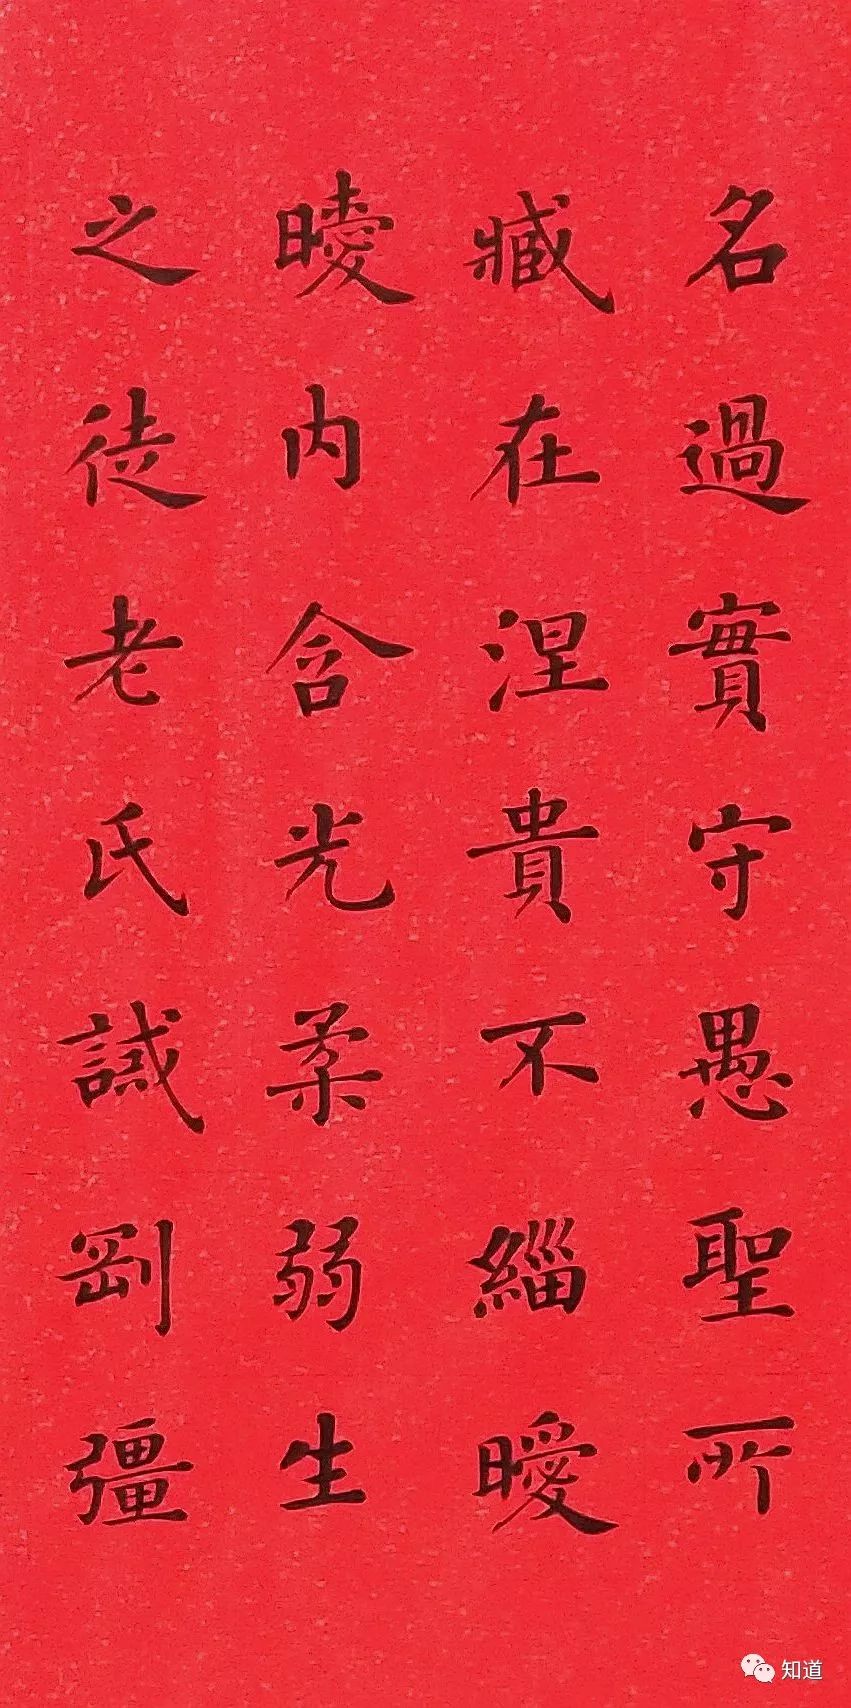 名過實守愚聖所
臧在涅貴不緇曖
曖内含光柔弱生
之徒老氏誡剛彊
知道